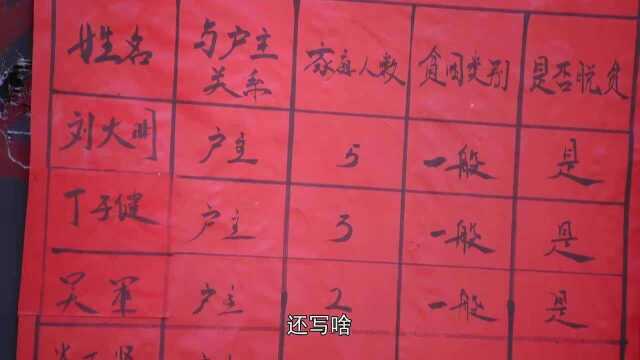 姓名 与户主关系 家庭人数 贫困类别 是否脱贫
刘大明 户主 5 一般 是
丁子健 户主 3 一般 是
吴军 户主 2 一般 是
还写啥